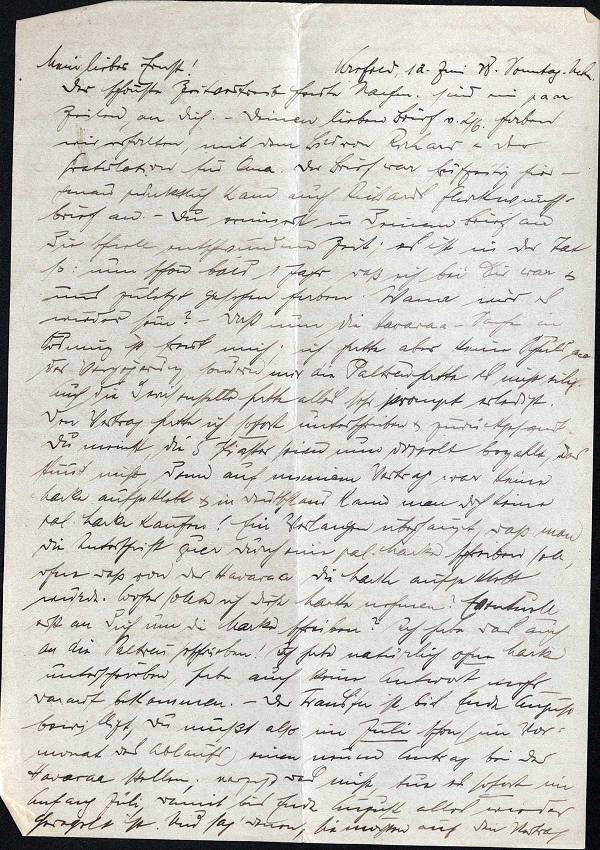 Mein lieber Ernst! Krefeld, 12. Juni 38. Sonntag Nchm.
Der schönste Zeitvertreib heute Nachm. sind ein paar
Zeilen an Dich. - Deinen lieben Brief v. 2/6. haben
wir erhalten, mit dem Brief von Richard u. der
Gratulation für Oma. Der Brief war frühzeitig hier -
und pünktlich kam auch Richards Glückwunsch-
brief an. - Du erinnerst in Deinem Brief an
die schnelle entschwundene Zeit; es ist in der Tat
so: nun schon bald 1 Jahr, daß ich bei Dir war &
uns zuletzt gesehen haben. Wann wird es
wieder sein? - Daß nun die Havaraa-Sache in
Ordnung ist freut mich; ich hatte aber keine Schuld an
der Verzögerung, sondern nur die Paltreu hatte es nicht eilig
Auch die hatte alles sehr prompt erledigt.
Den Vertrag hatte ich sofort unterschrieben & zurückgesandt.
Du meinst, die 5 Piaster seien nun doppelt bezahlt, das
stimmt nicht, denn auf meinem Vertrag war keine
Marke aufgeklebt & in Deutschland kann man doch keine
pal. Marke kaufen! Ein Verlangen überhaupt, daß man
die Unterschrift quer durch eine pal. Marke schreiben soll,
ohne daß von der Havaraa die Marke aufgeklebt
wurde. Woher sollte ich diese Marke nehmen? Eventuell
erst an Dich um die Marke schreiben? Ich habe das auch
an die Paltreu geschrieben! Ich habe natürlich ohne Marke
unterschrieben, habe auch keine Antwort mehr
darauf bekommen. - Der Transfer ist bis Ende August
bewilligt, Du mußt also im Juli schon (im Vor-
monat des Ablaufs) einen neuen Antrag bei der
Havaraa stellen; vergiß das nicht, tue es sofort im
Anfang Juli, damit bis Ende August alles wieder
geregelt ist. Und sag denen, sie möchten auf den Vertrag